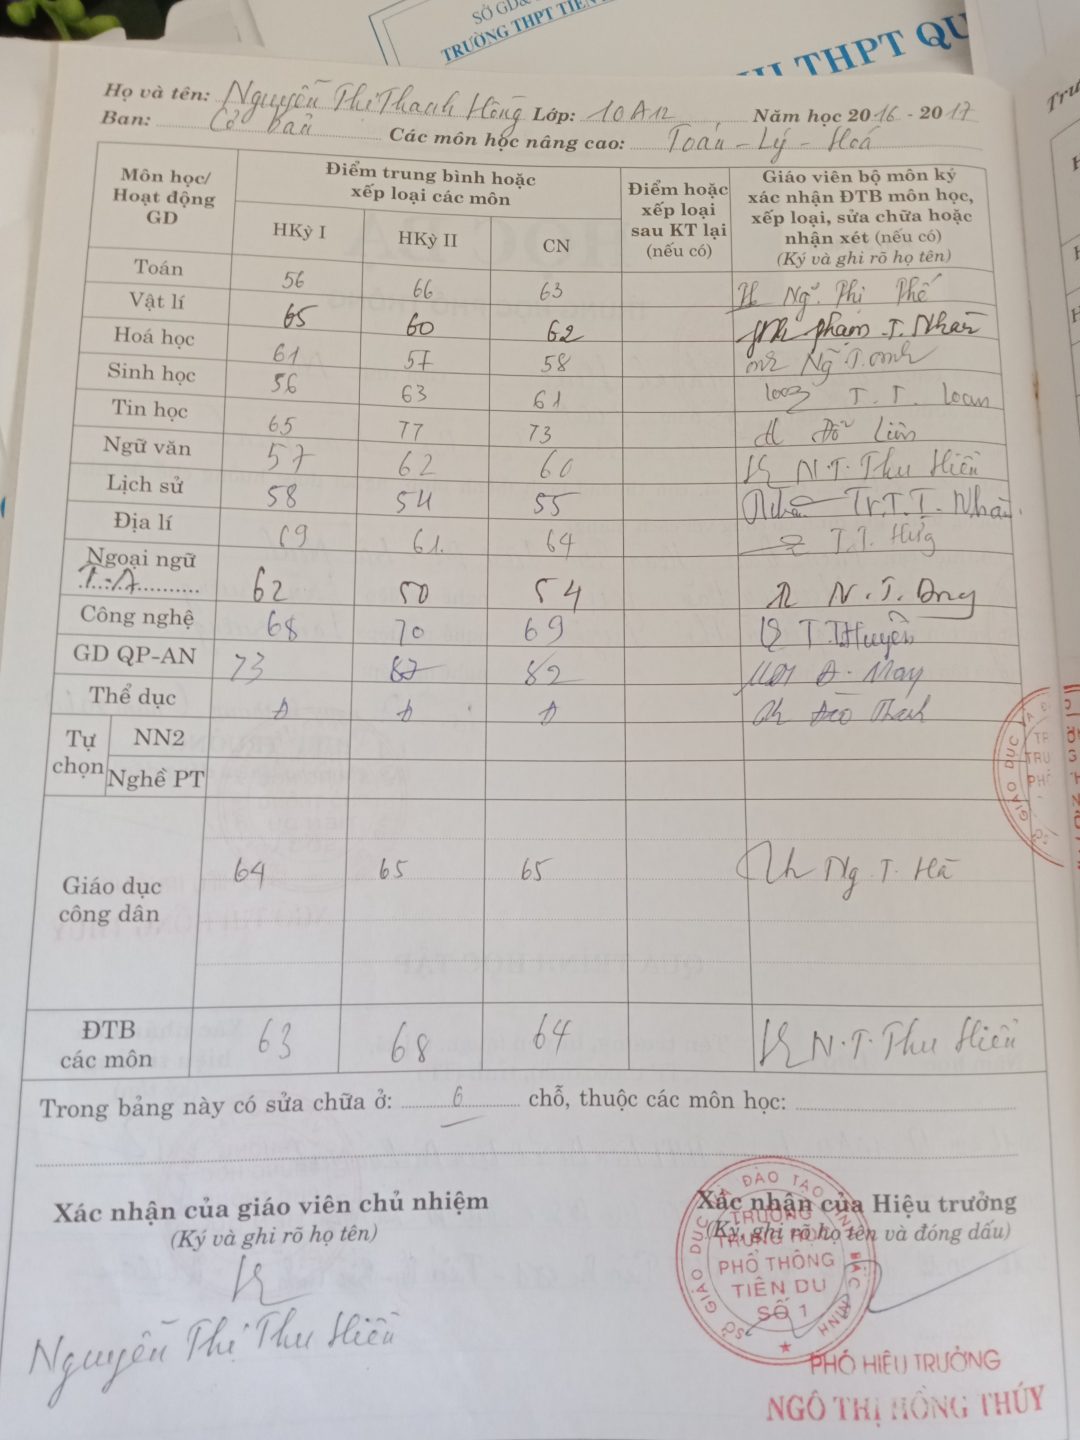 SỞ GD&
TRƯỜNG THPT TIÊN
THPT QU
Họ và tên: Nguyễn Thị Thanh Hồng Lớp: 10A12 Năm học 2016 - 2017
Ban: Cơ bản Các môn học nâng cao: Toán - Lý - Hoá
Môn học/ Hoạt động GD
Điểm trung bình hoặc xếp loại các môn
Điểm hoặc xếp loại sau KT lại (nếu có)
Giáo viên bộ môn ký xác nhận ĐTB môn học, xếp loại, sửa chữa hoặc nhận xét (nếu có) (Ký và ghi rõ họ tên)
HKỳ I HKỳ II CN
Toán 56 66 63 Ng. Thị Phố
Vật lí 65 60 62 Phạm T. Nhàn
Hoá học 61 57 58
Sinh học 56 63 61 T. T. Loan
Tin học 65 77 73 Đỗ Liên
Ngữ văn 57 62 60 N.T. Thu Hiền
Lịch sử 58 54 55 Tr.T.T. Nhàn
Địa lí 69 61 64 T.T. Hưng
Ngoại ngữ T.A 62 50 54 N.T.
Công nghệ 68 70 69 T.T Huyền
GD QP-AN 73 87 82 Đ. May
Thể dục Đ Đ Đ Đào Thanh
Tự chọn NN2
Nghề PT
Giáo dục công dân 64 65 65 Ng. T. Hà
ĐTB các môn 63 68 64 N.T. Thu Hiền
Trong bảng này có sửa chữa ở: 0 chỗ, thuộc các môn học:
Xác nhận của giáo viên chủ nhiệm
(Ký và ghi rõ họ tên)
Nguyễn Thị Thu Hiền
Xác nhận của Hiệu trưởng
(Ký, ghi rõ họ tên và đóng dấu)
SỞ GIÁO DỤC VÀ ĐÀO TẠO TỈNH BẮC NINH
TRƯỜNG
TRUNG HỌC
PHỔ THÔNG
TIÊN DU
SỐ 1
PHÓ HIỆU TRƯỞNG
NGÔ THỊ HỒNG THÚY